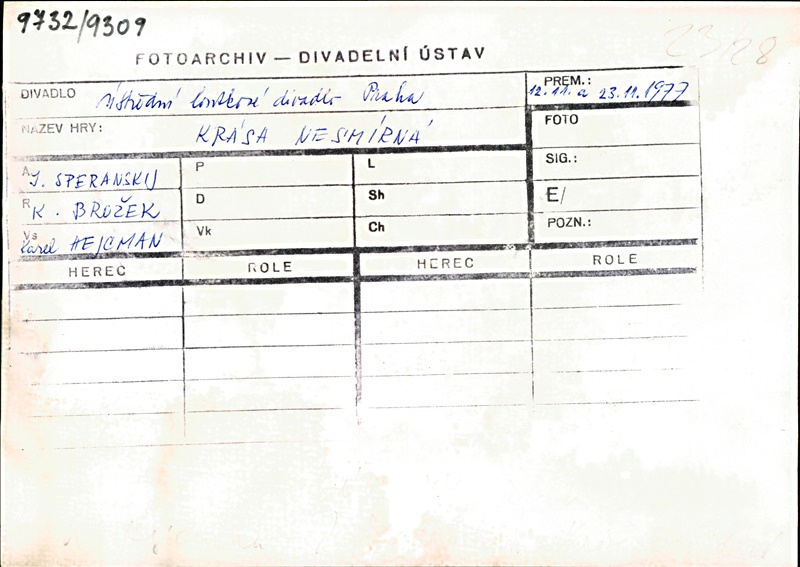 9732/9309
2328
FOTOARCHIV — DIVADELNÍ ÚSTAV
DIVADLO Ústřední loutkové divadlo Praha
PREM.: 12.11. a 23.11.1977
NÁZEV HRY: KRÁSA NESMÍRNÁ
FOTO
A J. SPERANSKIJ
P
L
SIG.:
R K. BROŽEK
D
Sh
E/
Vs Karel HEJCMAN
Vk
Ch
POZN.:
HEREC ROLE HEREC ROLE